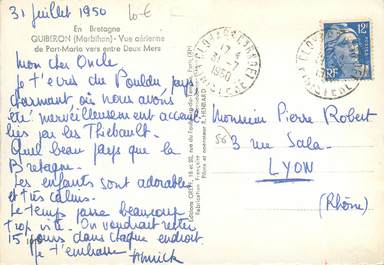 31 juillet 1950
10 €
En Bretagne
QUIBERON (Morbihan) - Vue aérienne
de Port-Maria vers entre Deux Mers
mon cher Oncle
je t'écris du Pouldu pays
charmant, où nous avons
été merveilleusement accueil
lis par les Thiébault.
Quel beau pays que la
Bretagne.
Les enfants sont adorables
et très calmes.
Le temps passe beaucoup
trop vite. On voudrait rester
15 jours dans chaque endroit
je t'embrasse
Fabrication Française
12F
RF
1950
FINISTERE
Monsieur Pierre Robert
3 rue Sala
LYON
(Rhône)